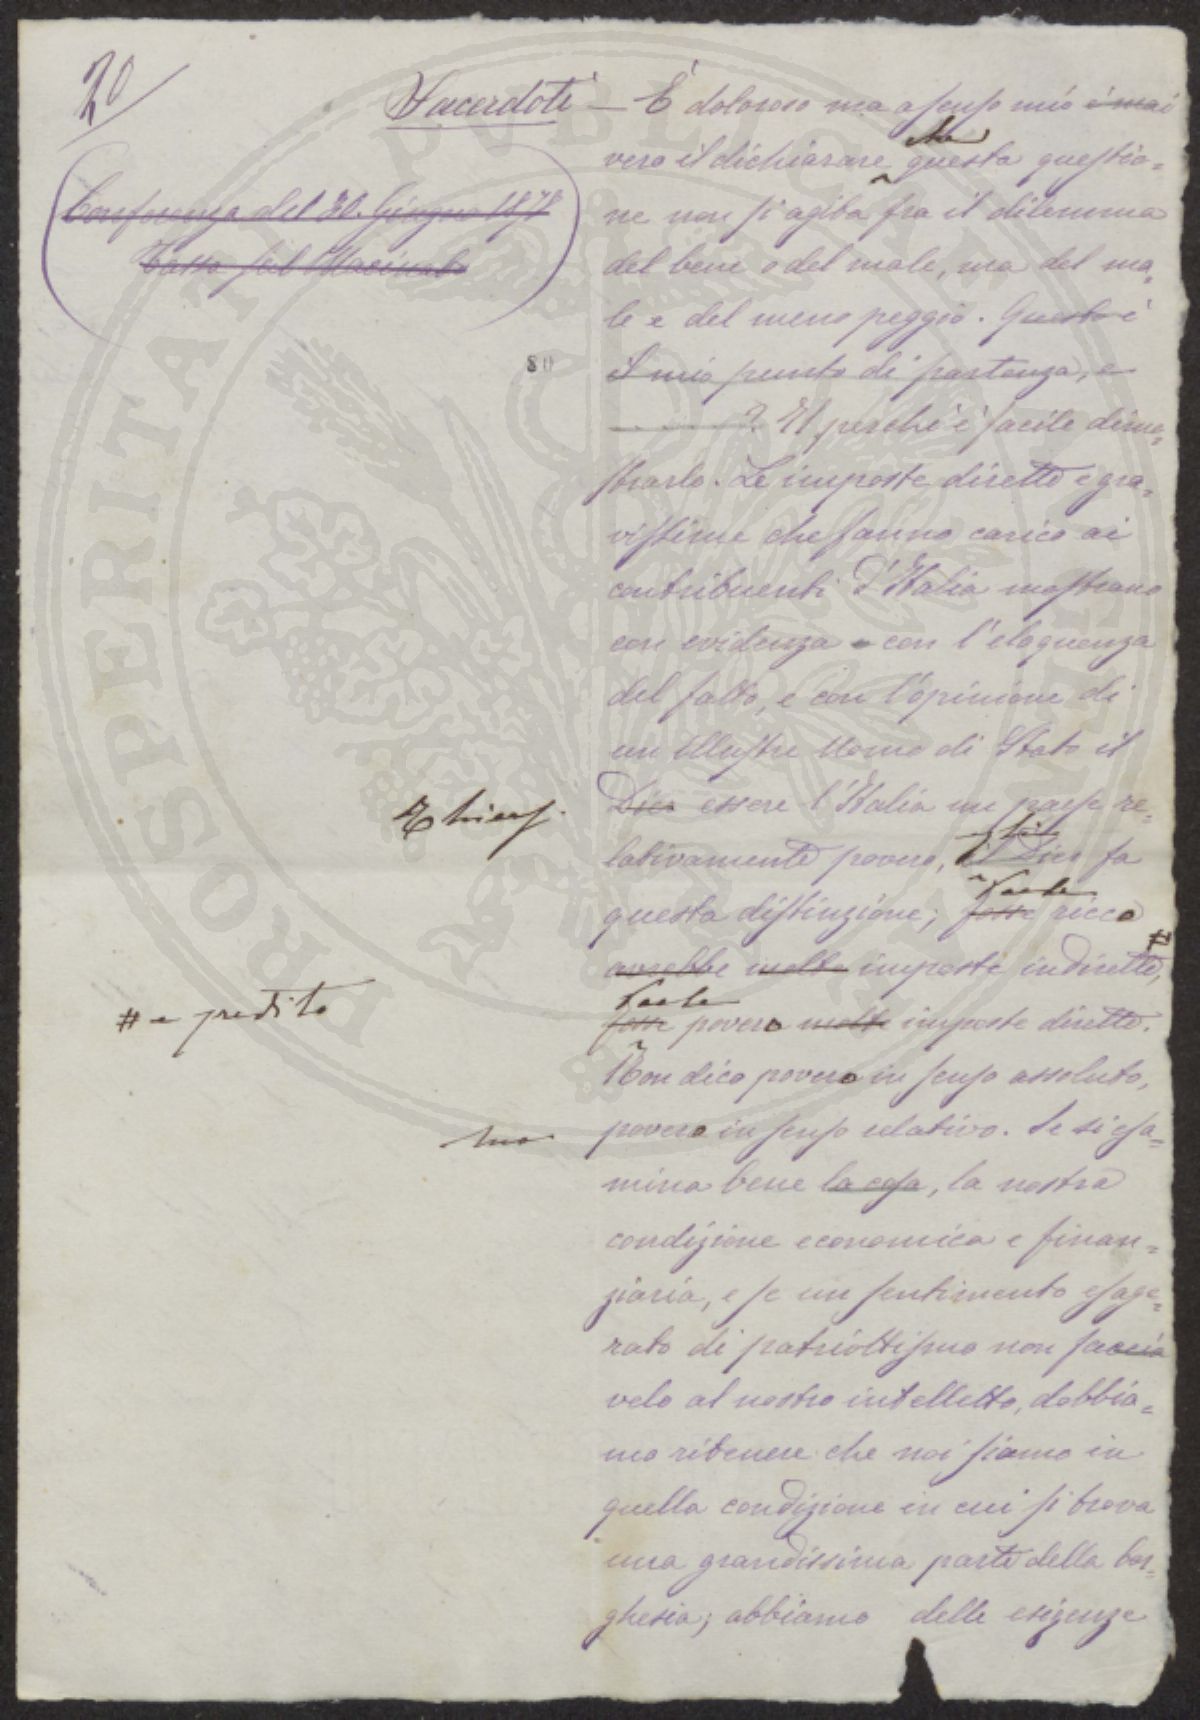 20
Sacerdoti — È doloroso ma a senso mio è mai
vero il dichiarare che questa questio=
Conferenza del 20. Giugno 1878
ne non si agita fra il dilemma
Tassa sul Macinato
del bene o del male, ma del ma=
le e del meno peggio. Questo è
80
il mio punto di partenza, e
? Il perchè è facile dimo=
strarlo. Le imposte dirette e gra=
vissime che fanno carico ai
contribuenti d'Italia mostrano
con evidenza e con l'eloquenza
del fatto, e con l'opinione di
un illustre Uomo di Stato il
Thiers.
essere l'Italia un paese re=
lativamente povero, fa
questa distinzione; Paese fosse ricco
avrebbe molte imposte indirette, #
# e predito
Paese
fosse povero molte imposte dirette.
Non dico povero in senso assoluto,
ma
povero in senso relativo. Se si esa=
mina bene la cosa, la nostra
condizione economica e finan=
ziaria, e se un sentimento esage=
rato di patriottismo non faccia
velo al nostro intelletto, dobbia=
mo ritenere che noi siamo in
quella condizione in cui si trova
una grandissima parte della bor=
ghesia; abbiamo delle esigenze
PROSPERITATI PUBLICAE